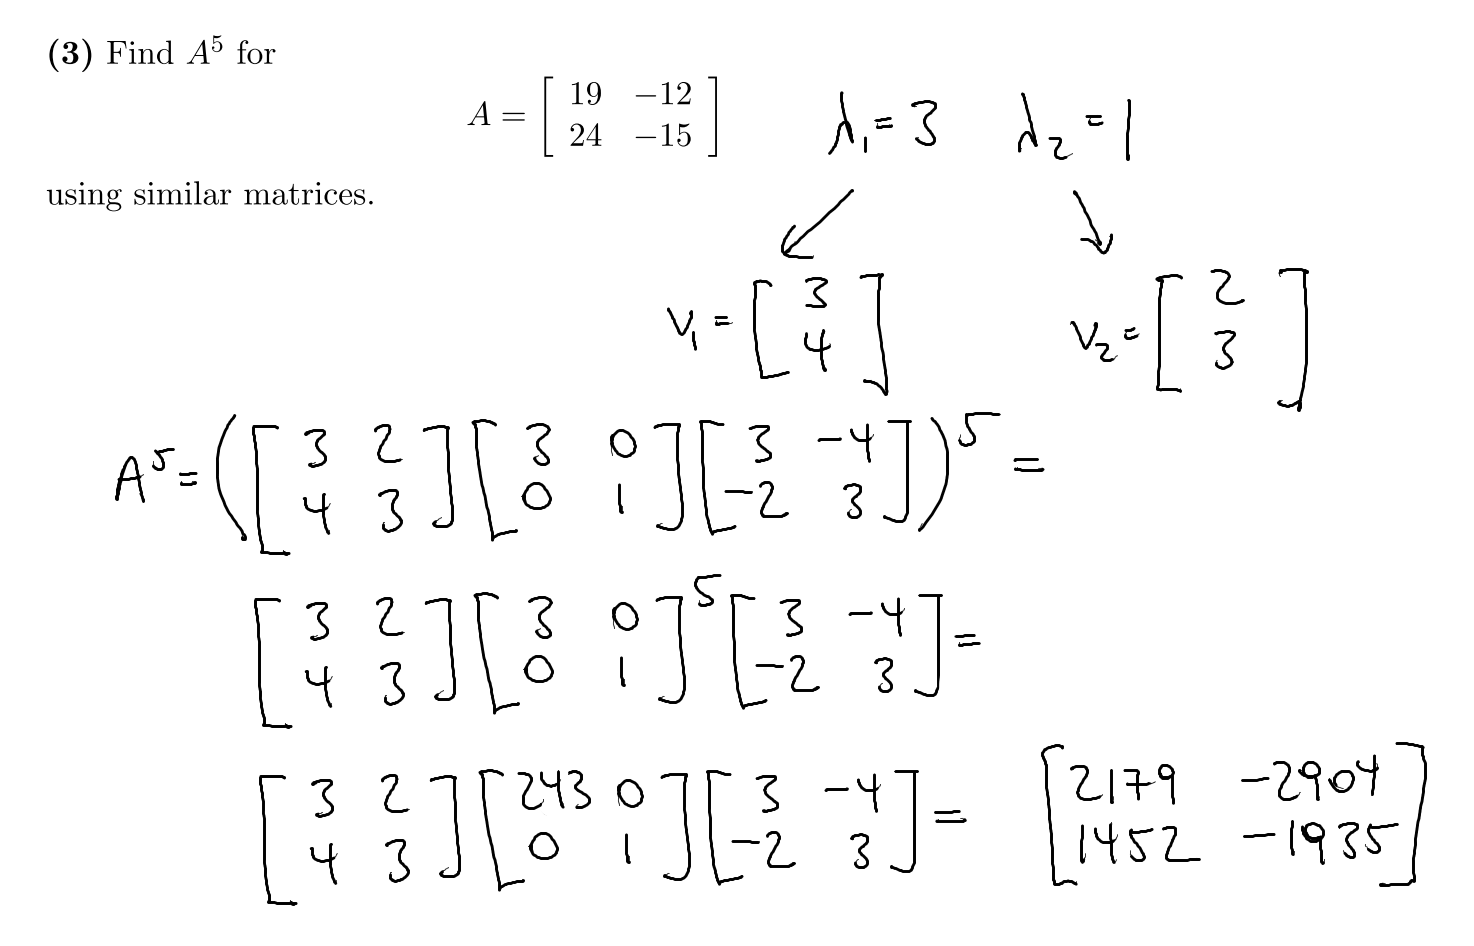 (3) Find A⁵ for
A = [ 19 −12 ; 24 −15 ] λ₁ = 3 λ₂ = 1
using similar matrices.
v₁ = [ 3 ; 4 ] v₂ = [ 2 ; 3 ]
A⁵ = ( [ 3 2 ; 4 3 ] [ 3 0 ; 0 1 ] [ 3 −4 ; −2 3 ] )⁵ =
[ 3 2 ; 4 3 ] [ 3 0 ; 0 1 ]⁵ [ 3 −4 ; −2 3 ] =
[ 3 2 ; 4 3 ] [ 243 0 ; 0 1 ] [ 3 −4 ; −2 3 ] = [ 2179 −2904 ; 1452 −1935 ]